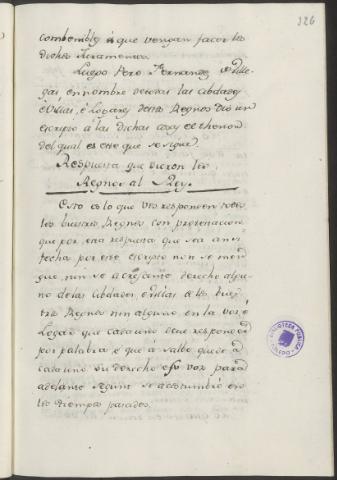 326
combenible é que vengan facer los
dichos Juramentos.
Luego Pero Fernandez de Ville-
gas en nombre de todas las cibdades
é Villas, é Logares destos Regnos dió un
escripto á las dichas el thenor
del qual es este que se sigue.
Respuesta que dieron los
Regnos al Rey.
Esto es lo que vos responden todos
los vuestros Regnos con protestacion
que por esta respuesta que sea ansi
fecha por este escripto non se men-
gue nin se acresçiente derecho algu-
no de las cibdades é villas de los vues-
tros Regnos nin alguno en la voz é
Logar que cada uno deve responder
por palabra é que á salbo quede á
cada uno su derecho é su voz para
adelante segunt se acostumbró en
los tiempos pasados.
BIBLIOTECA PUBLICA
TOLEDO